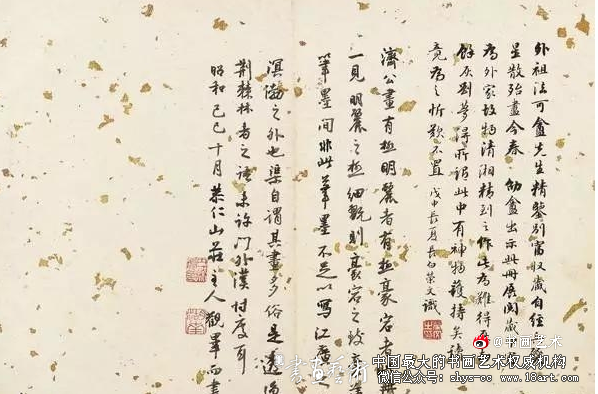 外祖法可盦先生精鑒別富收藏自經
星散殆盡今春 盦出示此冊展閱
為外家故物清湘精到之作此為難得
餘灰劉夢得所謂此中有神物護持矣
竟為之忻歎不置 戊申長夏長白榮文識
濟公畫有極明麗者有極豪宕者
一見明麗之極細翫則豪宕之致
筆墨間非此筆墨不足以寫江
溟 之外也渠自謂其畫多俗是
荊棘林者之語未許門外漢忖度耳
昭和己巳十月恭仁山莊主人觀畢而書
@书画艺术
中国最大的书画艺术权威机构
微信公众号: shys-cc www.18art.com